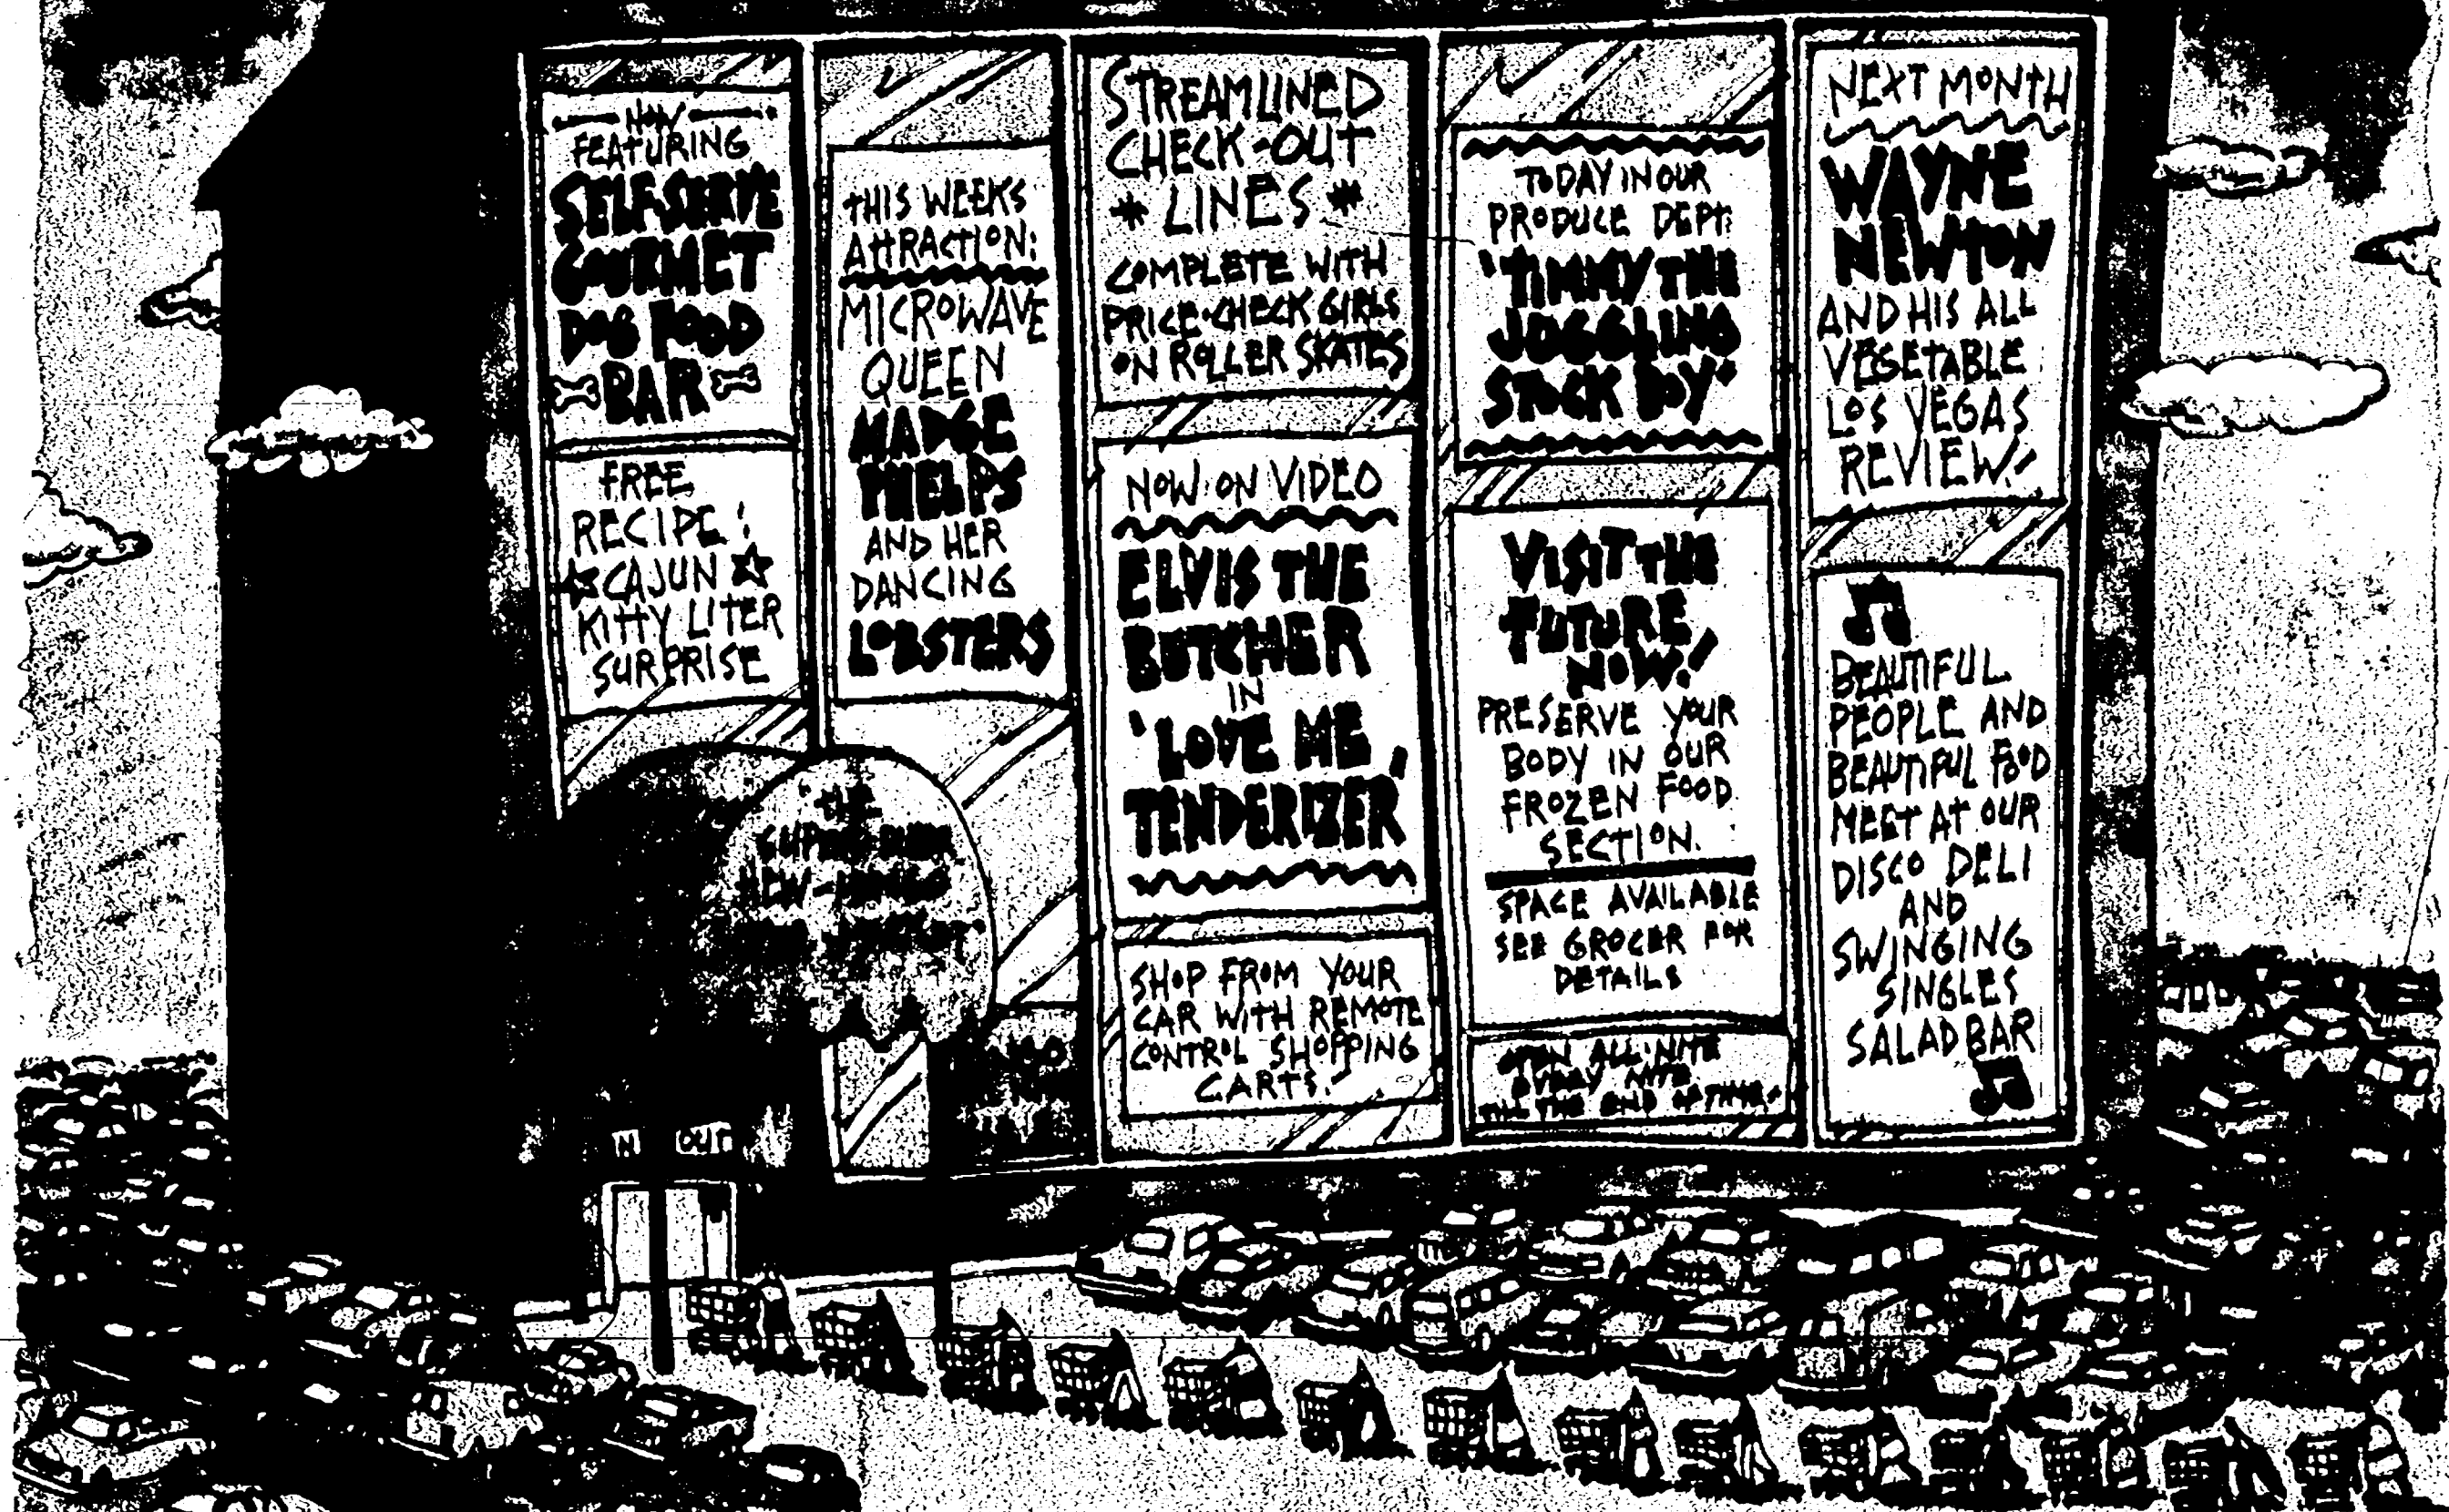 NOW
FEATURING
SELF-SERVE
GOURMET
DOG FOOD
BAR
FREE
RECIPE!
CAJUN
KITTY LITER
SURPRISE
THIS WEEKS
ATTRACTION:
MICROWAVE
QUEEN
MADGE
PHELPS
AND HER
DANCING
LOBSTERS
THE
IN OUT
STREAMLINED
CHECK-OUT
* LINES *
COMPLETE WITH
PRICE-CHECK GIRLS
ON ROLLER SKATES
NOW ON VIDEO
ELVIS THE
BUTCHER
IN
'LOVE ME
TENDERIZER'
SHOP FROM YOUR
CAR WITH REMOTE
CONTROL SHOPPING
CARTS!
TODAY IN OUR
PRODUCE DEPT:
'TIMMY THE
JUGGLING
STOCK BOY'
VISIT THE
FUTURE
NOW!
PRESERVE YOUR
BODY IN OUR
FROZEN FOOD
SECTION.
SPACE AVAILABLE
SEE GROCER FOR
DETAILS
OPEN ALL NITE
EVERY NITE
TILL THE END OF TIME!
NEXT MONTH
WAYNE
NEWTON
AND HIS ALL
VEGETABLE
LOS VEGAS
REVIEW!
BEAUTIFUL
PEOPLE AND
BEAUTIFUL FOOD
MEET AT OUR
DISCO DELI
AND
SWINGING
SINGLES
SALAD BAR